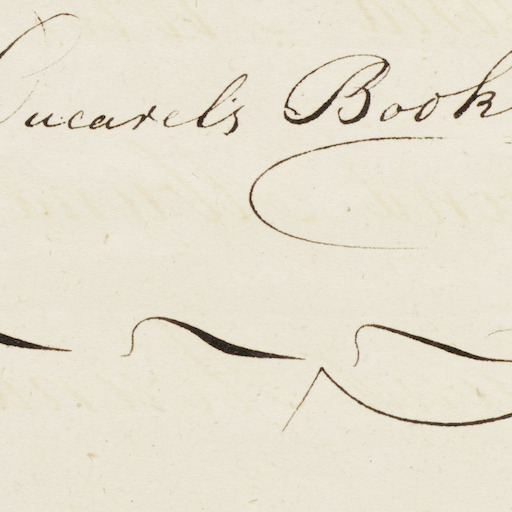 Ducarel's Book